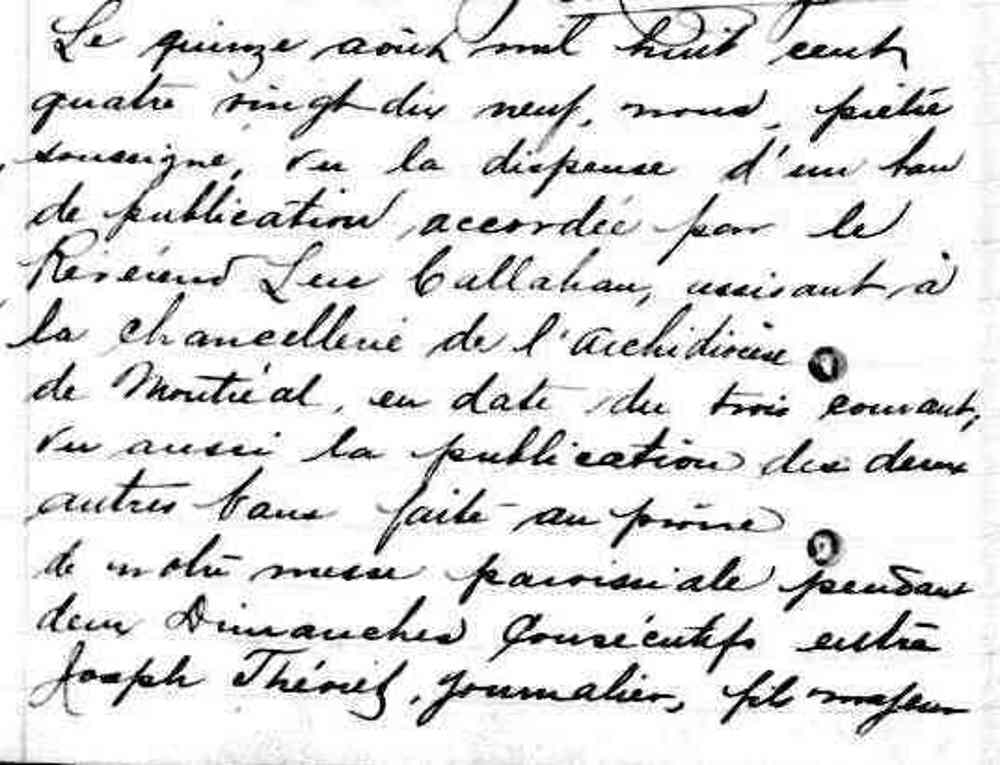 Le quinze août mil huit cent
quatre vingt dix neuf, nous, prêtre
soussigné, vu la dispense d'un ban
de publication accordée par le
Révérend Luc Callahan, assistant à
la chancellerie de l'archidiocèse
de Montréal, en date du trois courant,
vu aussi la publication des deux
autres bans faite au prône
de notre messe paroissiale pendant
deux Dimanches Consécutifs entre
Joseph journalier, fils majeur